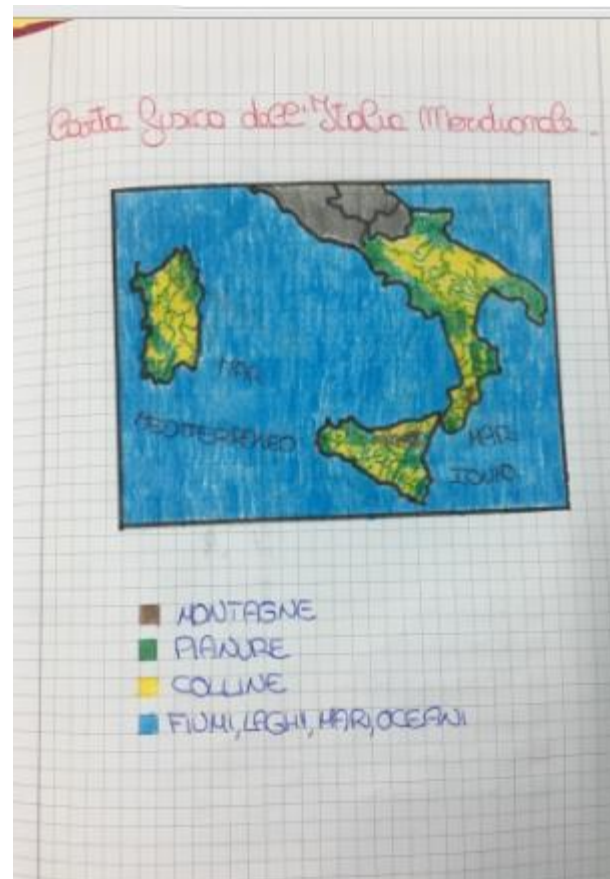 Carta fisica dell'Italia Meridionale.
MAR
MEDITERRANEO
MAR
IONIO
MONTAGNE
PIANURE
COLLINE
FIUMI, LAGHI, MARI, OCEANI